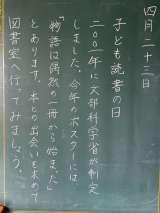 四月二十三日
子ども読書の日
二〇〇一年に文部科学省が制定
しました。今年のポスターには
「物語は偶然の一冊から始まった」
とあります。本との出会いを求めて
図書室へ行ってみましょう。